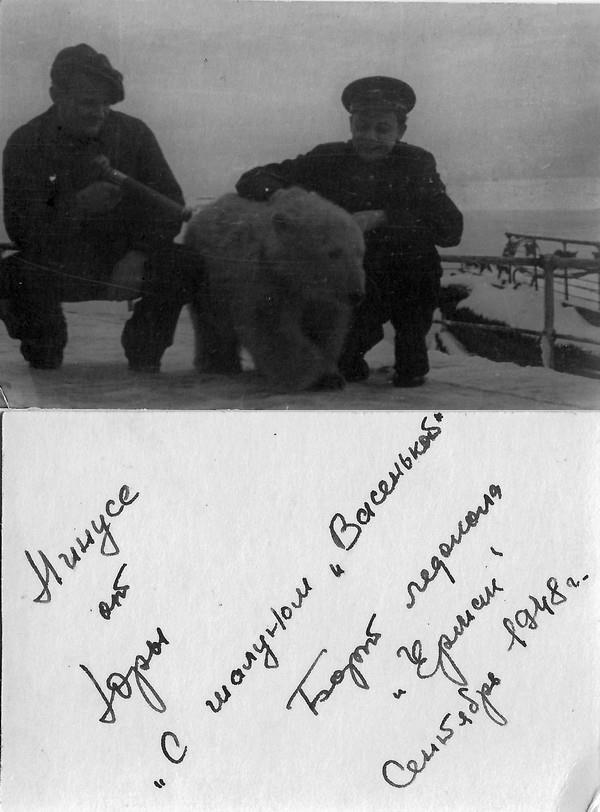 Нинусе
от
Юры
„С шалуном „Васенькой"
Борт ледокола
„Ермак"
Сентябрь 1948 г.